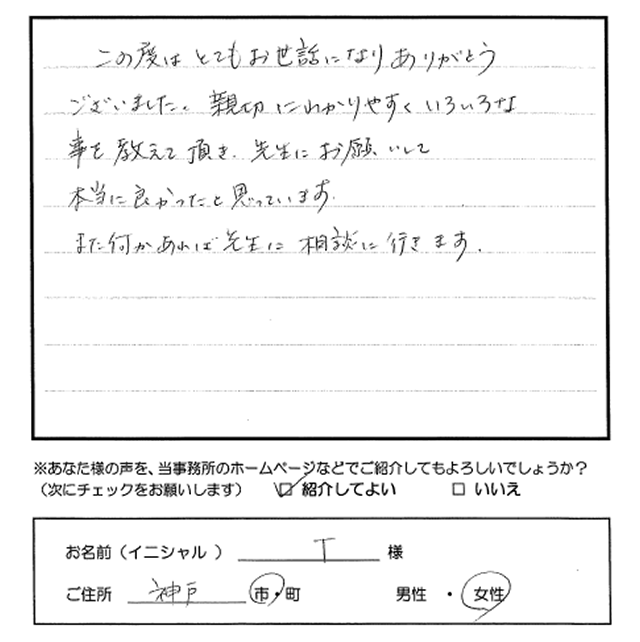 この度は とてもお世話になりありがとう
ございました。親切にわかりやすくいろいろな
事を教えて頂き、先生にお願いして
本当に良かったと思っています。
また何かあれば先生に相談に行きます。
※あなた様の声を、当事務所のホームページなどでご紹介してもよろしいでしょうか?
(次にチェックをお願いします) ☑ 紹介してよい □ いいえ
お名前(イニシャル ) T 様
ご住所 神戸 市・町 男性 ・ 女性